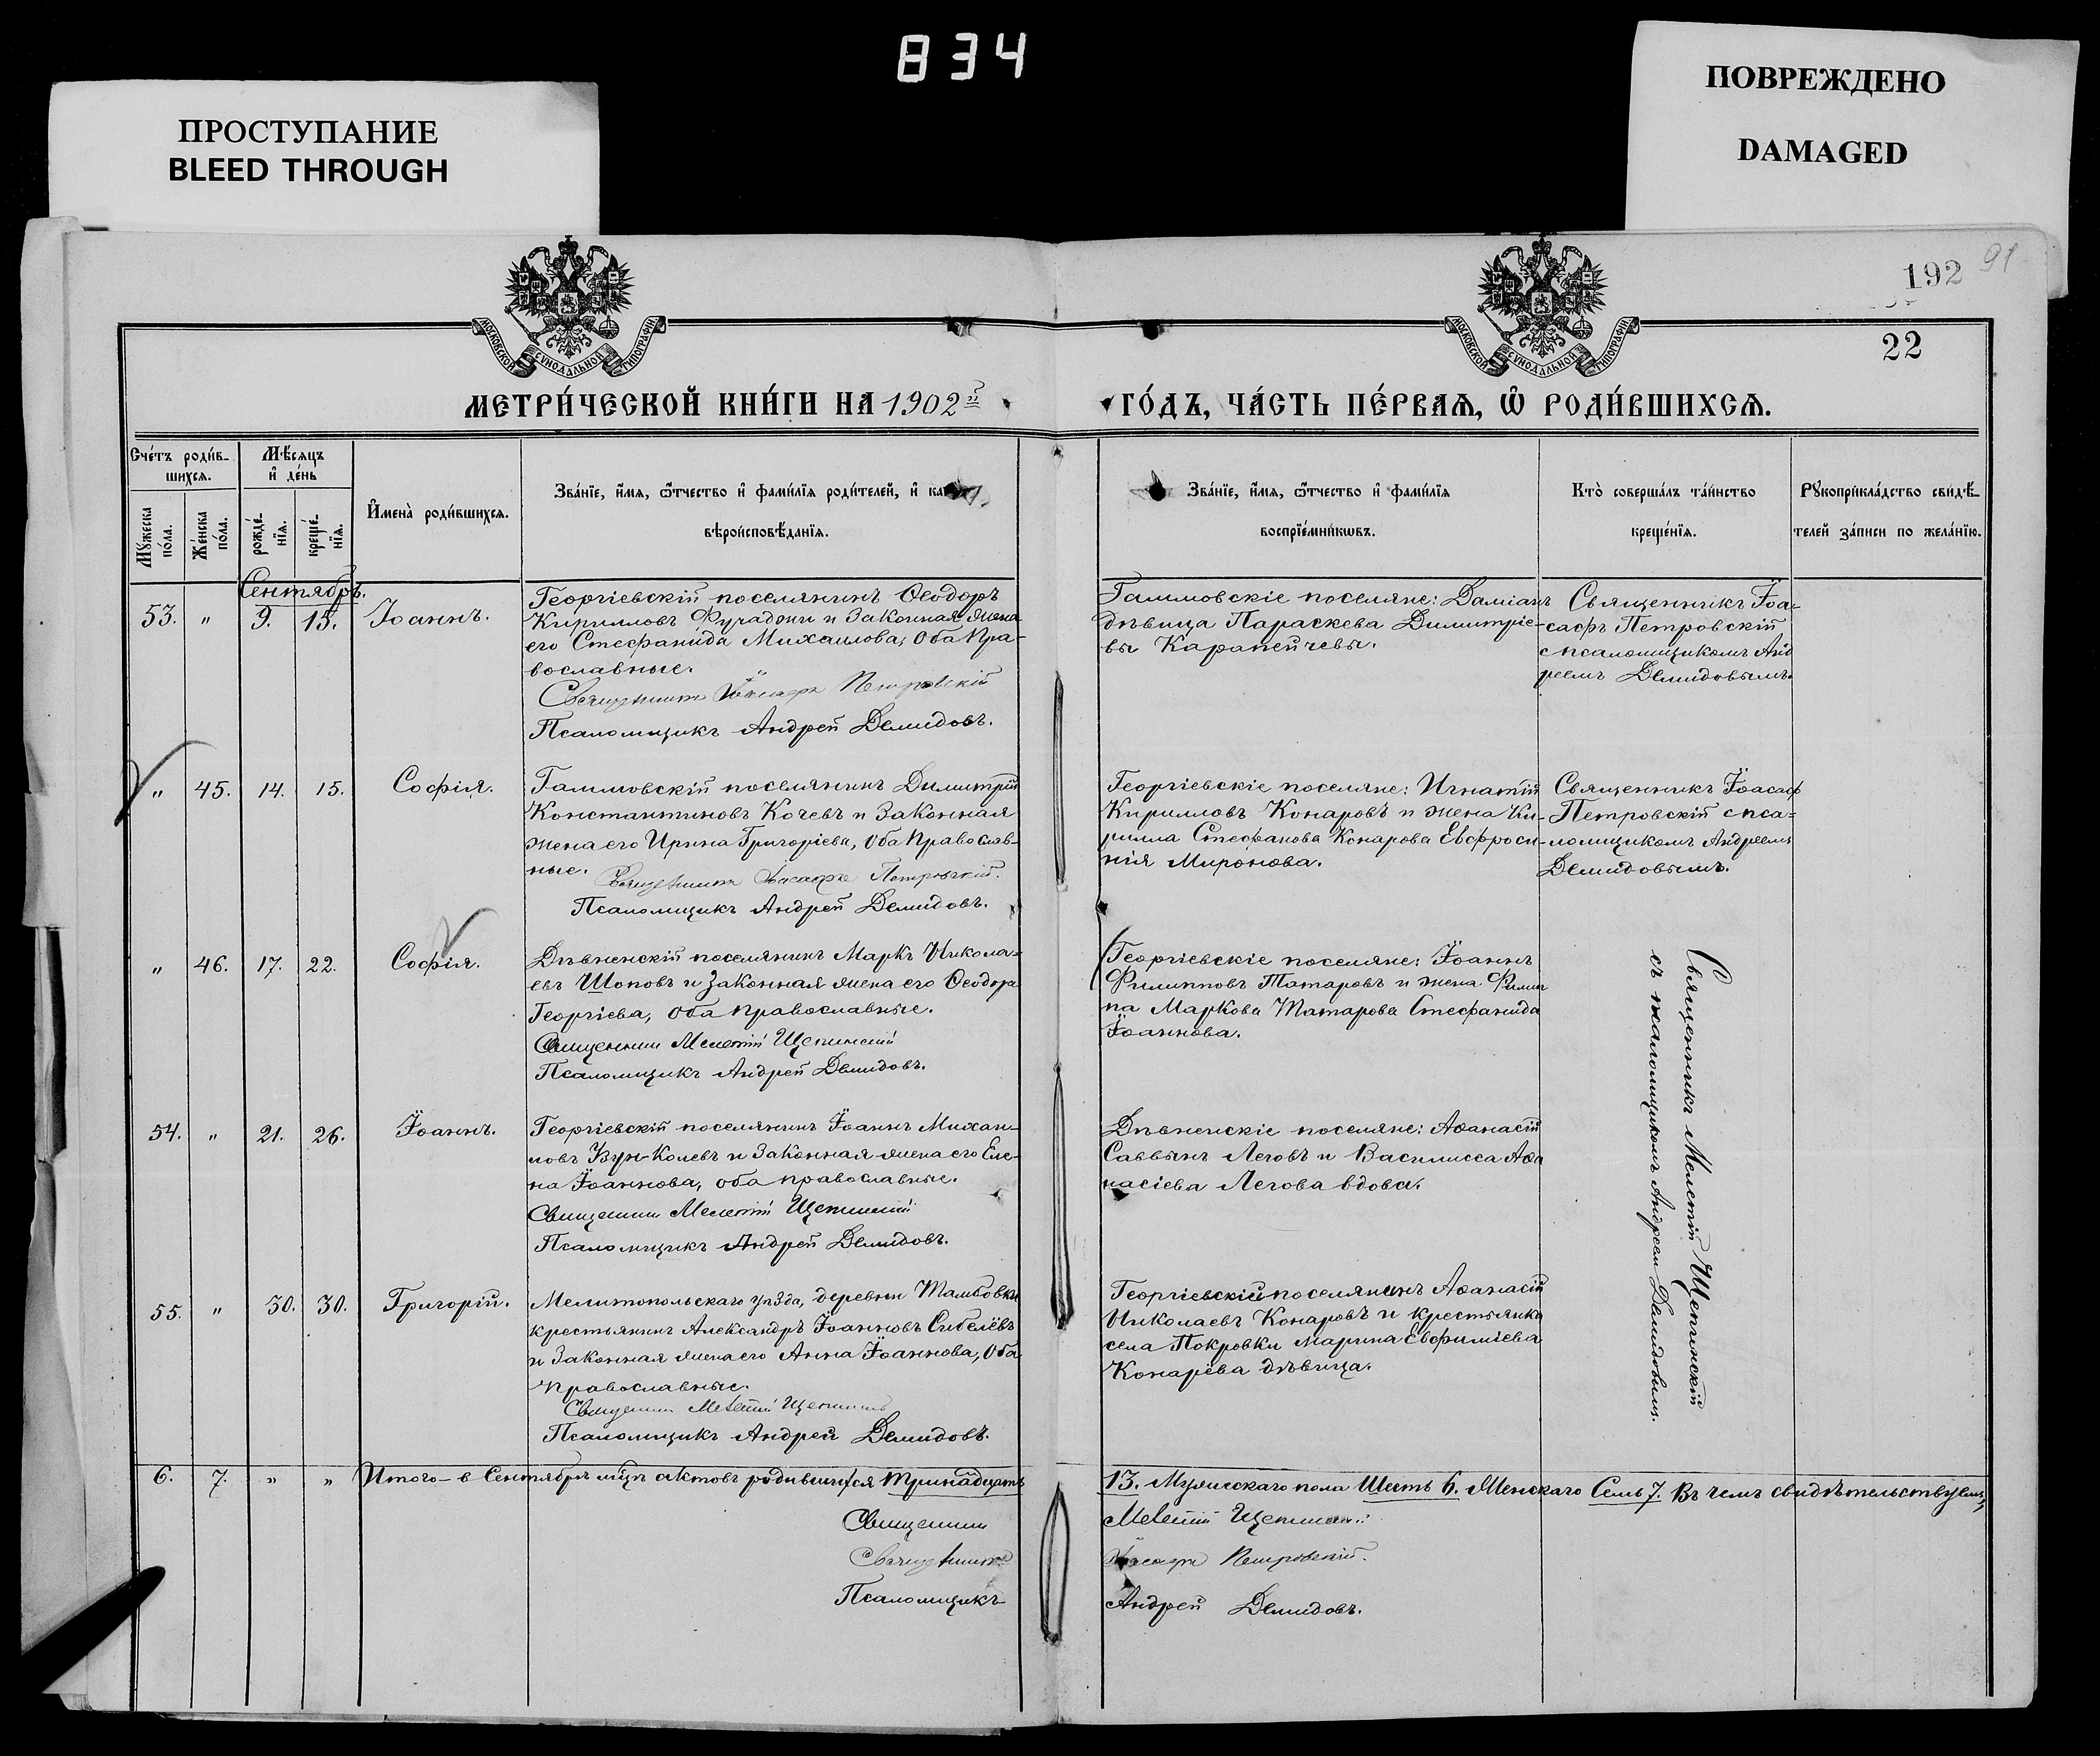 834
ПРОСТУПАНИЕ
BLEED THROUGH
ПОВРЕЖДЕНО
DAMAGED
192 91
22
МОСКОВСКОЙ СѴНОДАЛЬНОЙ ТИПОГРАФІИ
МОСКОВСКОЙ СѴНОДАЛЬНОЙ ТИПОГРАФІИ
МЕТРИ́ЧЕСКОЙ КНИ́ГИ НА 1902й
ГО́ДЪ, ЧА́СТЬ ПЕ́РВАѦ, Ѽ РОДИ́ВШИХСѦ.
Сче́тъ роди́в-
шихсѧ.
Мꙋжеска по́ла.
Же́нска по́ла.
Мѣ́сѧцъ
и҆ де́нь
рожде́-
нїѧ.
креще́-
нїѧ.
И҆мена̀ роди́вшихсѧ.
Зва́нїе, и҆́мѧ, ѻ҆́тчество и҆ фами́лїѧ роди́телей, и҆
вѣроисповѣ́данїѧ.
Зва́нїе, и҆́мѧ, ѻ҆́тчество и҆ фами́лїѧ
воспрїе́мникѡвъ.
Кто̀ соверша́лъ та́инство
креще́нїѧ.
Рꙋкоприкла́дство свидѣ́-
телей за́писи по жела́нїю.
Сентябрь.
53. " 9. 15. Іоаннъ.
Георгіевскій поселянинъ Ѳеодоръ
Кирилловъ Фучаджи и законная жена
его Стефанида Михаилова, оба пра-
вославные.
Священникъ Іоасафъ Петровскій
Псаломщикъ Андрей Демидовъ.
Галимовскіе поселяне: Даміанъ
дѣвица Параскева Димитріе-
вы Карапейчевы.
Священникъ Іоа-
сафъ Петровскій
с псаломщикомъ Анд
реемъ Демидовымъ.
" 45. 14. 15. Софія.
Галимовскій поселянинъ Димитрій
Константиновъ Кочевъ и законная
жена его Ирина Григоріева, оба православ-
ные. Священникъ Іоасафъ Петровскій.
Псаломщикъ Андрей Демидовъ.
Георгіевскіе поселяне: Игнатій
Кирилловъ Конаровъ и жена Ки-
рилла Стефанова Конарова Евфроси-
нія Миронова.
Священникъ Іоасафъ
Петровскій с пса-
ломщикомъ Андреемъ
Демидовымъ.
" 46. 17. 22. Софія.
Дѣвненскій поселянинъ Маркъ Никола-
евъ Шоповъ и законная жена его Ѳеодора
Георгіева, оба православные.
Священникъ Мелетій Щепинскій
Псаломщикъ Андрей Демидовъ.
Георгіевскіе поселяне: Іоаннъ
Филипповъ Татаровъ и жена Филип
па Маркова Татарова Стефанида
Іоаннова.
Священникъ Мелетій Щепинскій
съ псаломщикомъ Андреемъ Демидовымъ.
54. " 21. 26. Іоаннъ.
Георгіевскій поселянинъ Іоаннъ Михаи-
ловъ Вун-Колевъ и законная жена его Еле-
на Іоаннова, оба православные.
Священникъ Мелетій Щепинскій
Псаломщикъ Андрей Демидовъ.
Дѣвненскіе поселяне: Аѳанасій
Саввинъ Леговъ и Василисса Аѳа
насіева Легова вдова.
55. " 30. 30. Григорій.
Мелитопольскаго уѣзда, деревни Тамбовки
крестьянинъ Александръ Іоанновъ Сибелёвъ
и законная жена его Анна Іоаннова, оба
православные.
Священникъ Мелетій Щепинскій
Псаломщикъ Андрей Демидовъ.
Георгіевскій поселянинъ Аѳанасій
Николаевъ Конаровъ и крестьянка
села Покровки Марина Евфиміева
Конарёва дѣвица.
6. 7. " " Итого в Сентябрѣ мцѣ актовъ родившихся тринадцать
13. Мужескаго пола Шесть 6. Женскаго Семь 7. Въ чемъ свидѣтельствуемъ,
Священникъ Мелетій Щепинскій
Священникъ Іоасафъ Петровскій.
Псаломщикъ Андрей Демидовъ.